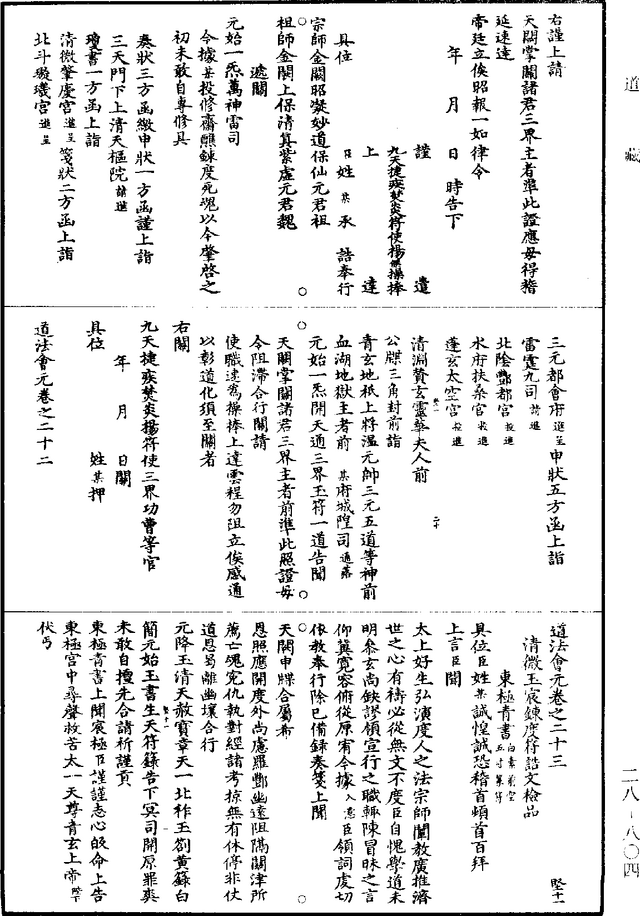 道藏
右謹上請
天闕掌關諸君三界主者準此證應毋得稽
延速達
帝廷立俟昭報一如律令
年 月 日 時告下
謹 遣
九天捷疾焚炎符使楊無操捧
上 達
具位 臣姓 某 承 誥奉行
宗師金闕昭凝妙道保仙元君祖
祖師金闕上保清真紫虛元君魏
遞關
元始一炁萬神雷司
今據某投修齋醮鍊度死魂以今肇啓之
初未敢自專修具
奏狀三方函繳申狀一方函謹上詣
三天門下上清天樞院請進
瓊書一方函上詣
清微肇慶宮進呈箋狀二方函上詣
北斗璇璣宮進呈
三元都會府進呈申狀五方函上詣
雷霆九司請進
北陰酆都宮投進
水府扶桑宮投進
蓬玄太空宮投進
清淵贊玄靈華夫人前
公牒三角封前詣
青玄地衹上將溫元帥三元五道等神前
血湖地獄主者前 某府城隍司通落
元始一炁開天通三界玉符一道告聞
天闕掌關諸君三界主者前準此照證毋
令阻滯合行關請
使職逹為操捧上達雲程勿阻立俟感通
以彰道化須至關者
右關
九天捷疾焚炎揚符使三界功曹等官
年 月 日關
具位 姓某押
道法會元卷之二十二
道法會元卷之二十三 堅十一
清微玉宸鍊度符誥文檢品
東極青書
具位臣姓某誠惶誠恐稽首頓首百拜
上言臣聞
太上好生弘演度人之法宗師闡教廣推濟
世之心有禱必從無文不度臣自愧學道未
明叅玄尚缺謬領宣行之職輙陳冒昧之言
仰冀寬容俯從原宥今據入意臣領詞虔切
依教奉行除已備錄奏箋上聞
天闕申牒合屬希
恩照應開度外尚慮羅酆幽遠阻隔關津所
薦亡魂冤仇執對經諸考掠無有休停非仗
道恩曷離幽壤合行
元降玉清天赦寶章天一北祚玉劄黃籙白
簡元始玉書生天符籙告下冥司開原罪爽
未敢自擅先合請祈謹頁
東極青書上聞宸極臣謹謹志心皈命上告
東極宮中尋聲救苦太一天尊青玄上帝
伏丐
二八-八〇四